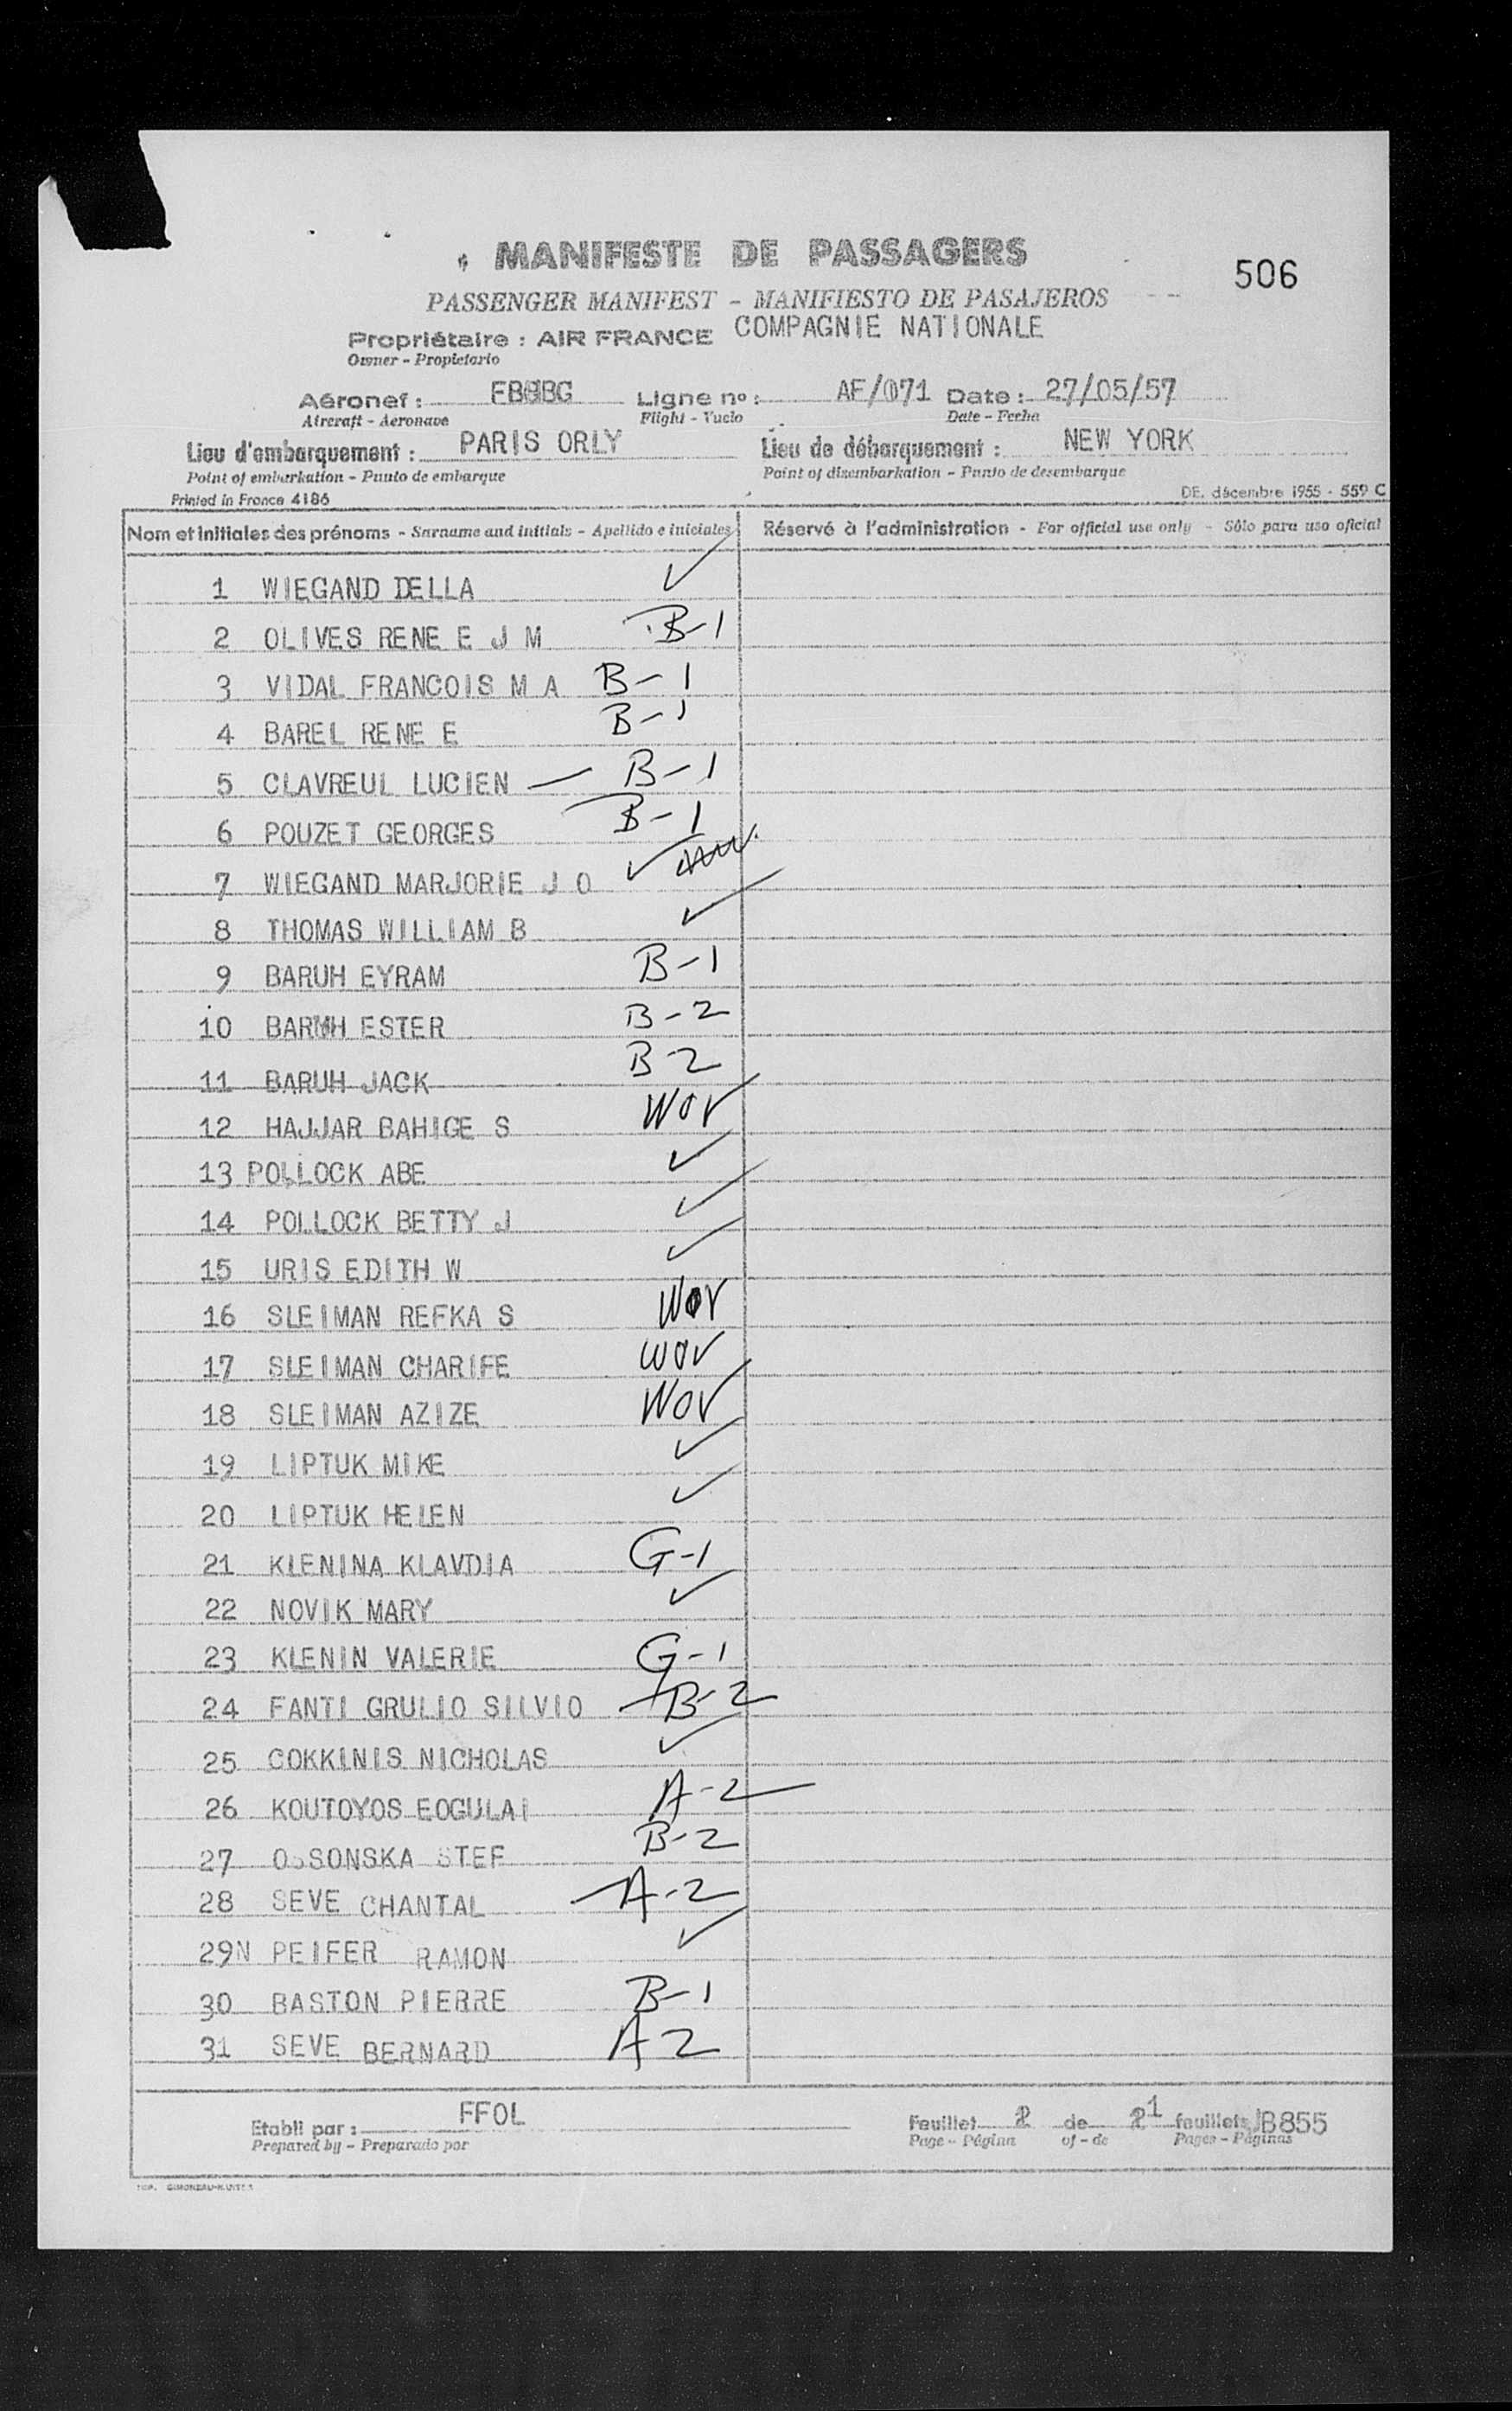 MANIFESTE DE PASSAGERS
506
PASSENGER MANIFEST - MANIFIESTO DE PASAJEROS
Propriétaire : AIR FRANCE COMPAGNIE NATIONALE
Owner - Propietario
Aéronef : Ligne no : AF/071 Date : 27/05/57
Aircraft - Aeronave Flight - Vuelo Date - Fecha
Lieu d'embarquement : PARIS ORLY Lieu de débarquement : NEW YORK
Point of embarkation - Punto de embarque Point of disembarkation - Punto de desembarque
Printed in France 4186 DE. décembre 1955 - 559 C
Nom et initiales des prénoms - Surname and initials - Apellido e iniciales Réservé à l'administration - For official use only - Sólo para uso oficial
1 WIEGAND DELLA ✓
2 OLIVES RENE E J M B-1
3 VIDAL FRANCOIS M A B-1
4 BAREL RENE E B-1
5 CLAVREUL LUCIEN — B-1
6 POUZET GEORGES B-1
7 WIEGAND MARJORIE J O ✓
8 THOMAS WILLIAM B ✓
9 BARUH EYRAM B-1
10 ESTER B-2
11 BARUH JACK B-2
12 HAJJAR BAHIGE S WOV
13 POLLOCK ABE ✓
14 POLLOCK BETTY J ✓
15 URIS EDITH W ✓
16 SLEIMAN REFKA S WOV
17 SLEIMAN CHARIFE WOV
18 SLEIMAN AZIZE WOV
19 LIPTUK MIKE ✓
20 LIPTUK HELEN ✓
21 KLENINA KLAVDIA G-1
22 NOVIK MARY ✓
23 KLENIN VALERIE G-1
24 FANTI GRULIO SILVIO B-2
25 COKKINIS NICHOLAS ✓
26 KOUTOYOS EOGULAI A-2
27 OSSONSKA STEF B-2
28 SEVE CHANTAL A-2
29N PEIFER RAMON ✓
30 BASTON PIERRE B-1
31 SEVE BERNARD A2
Etabli par : FFOL Feuillet de feuillets B855
Prepared by - Preparado por Page - Página of - de Pages - Páginas